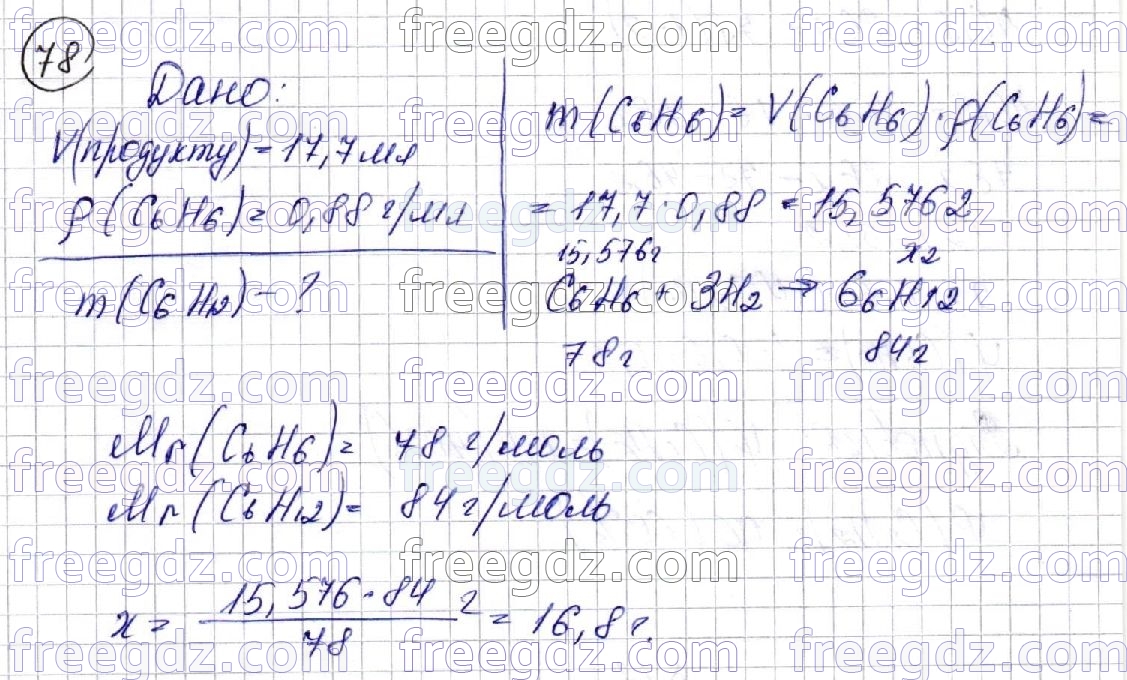 78
Дано:
V(продукту) = 17,7 мл
ρ(C6H6) = 0,88 г/мл
m(C6H12) - ?
m(C6H6) = V(C6H6) · ρ(C6H6) =
= 17,7 · 0,88 = 15,576 г
15,576 г x г
C6H6 + 3H2 → C6H12
78 г 84 г
Mr(C6H6) = 78 г/моль
Mr(C6H12) = 84 г/моль
x = 15,576 · 84 / 78 г = 16,8 г.
freegdz.com